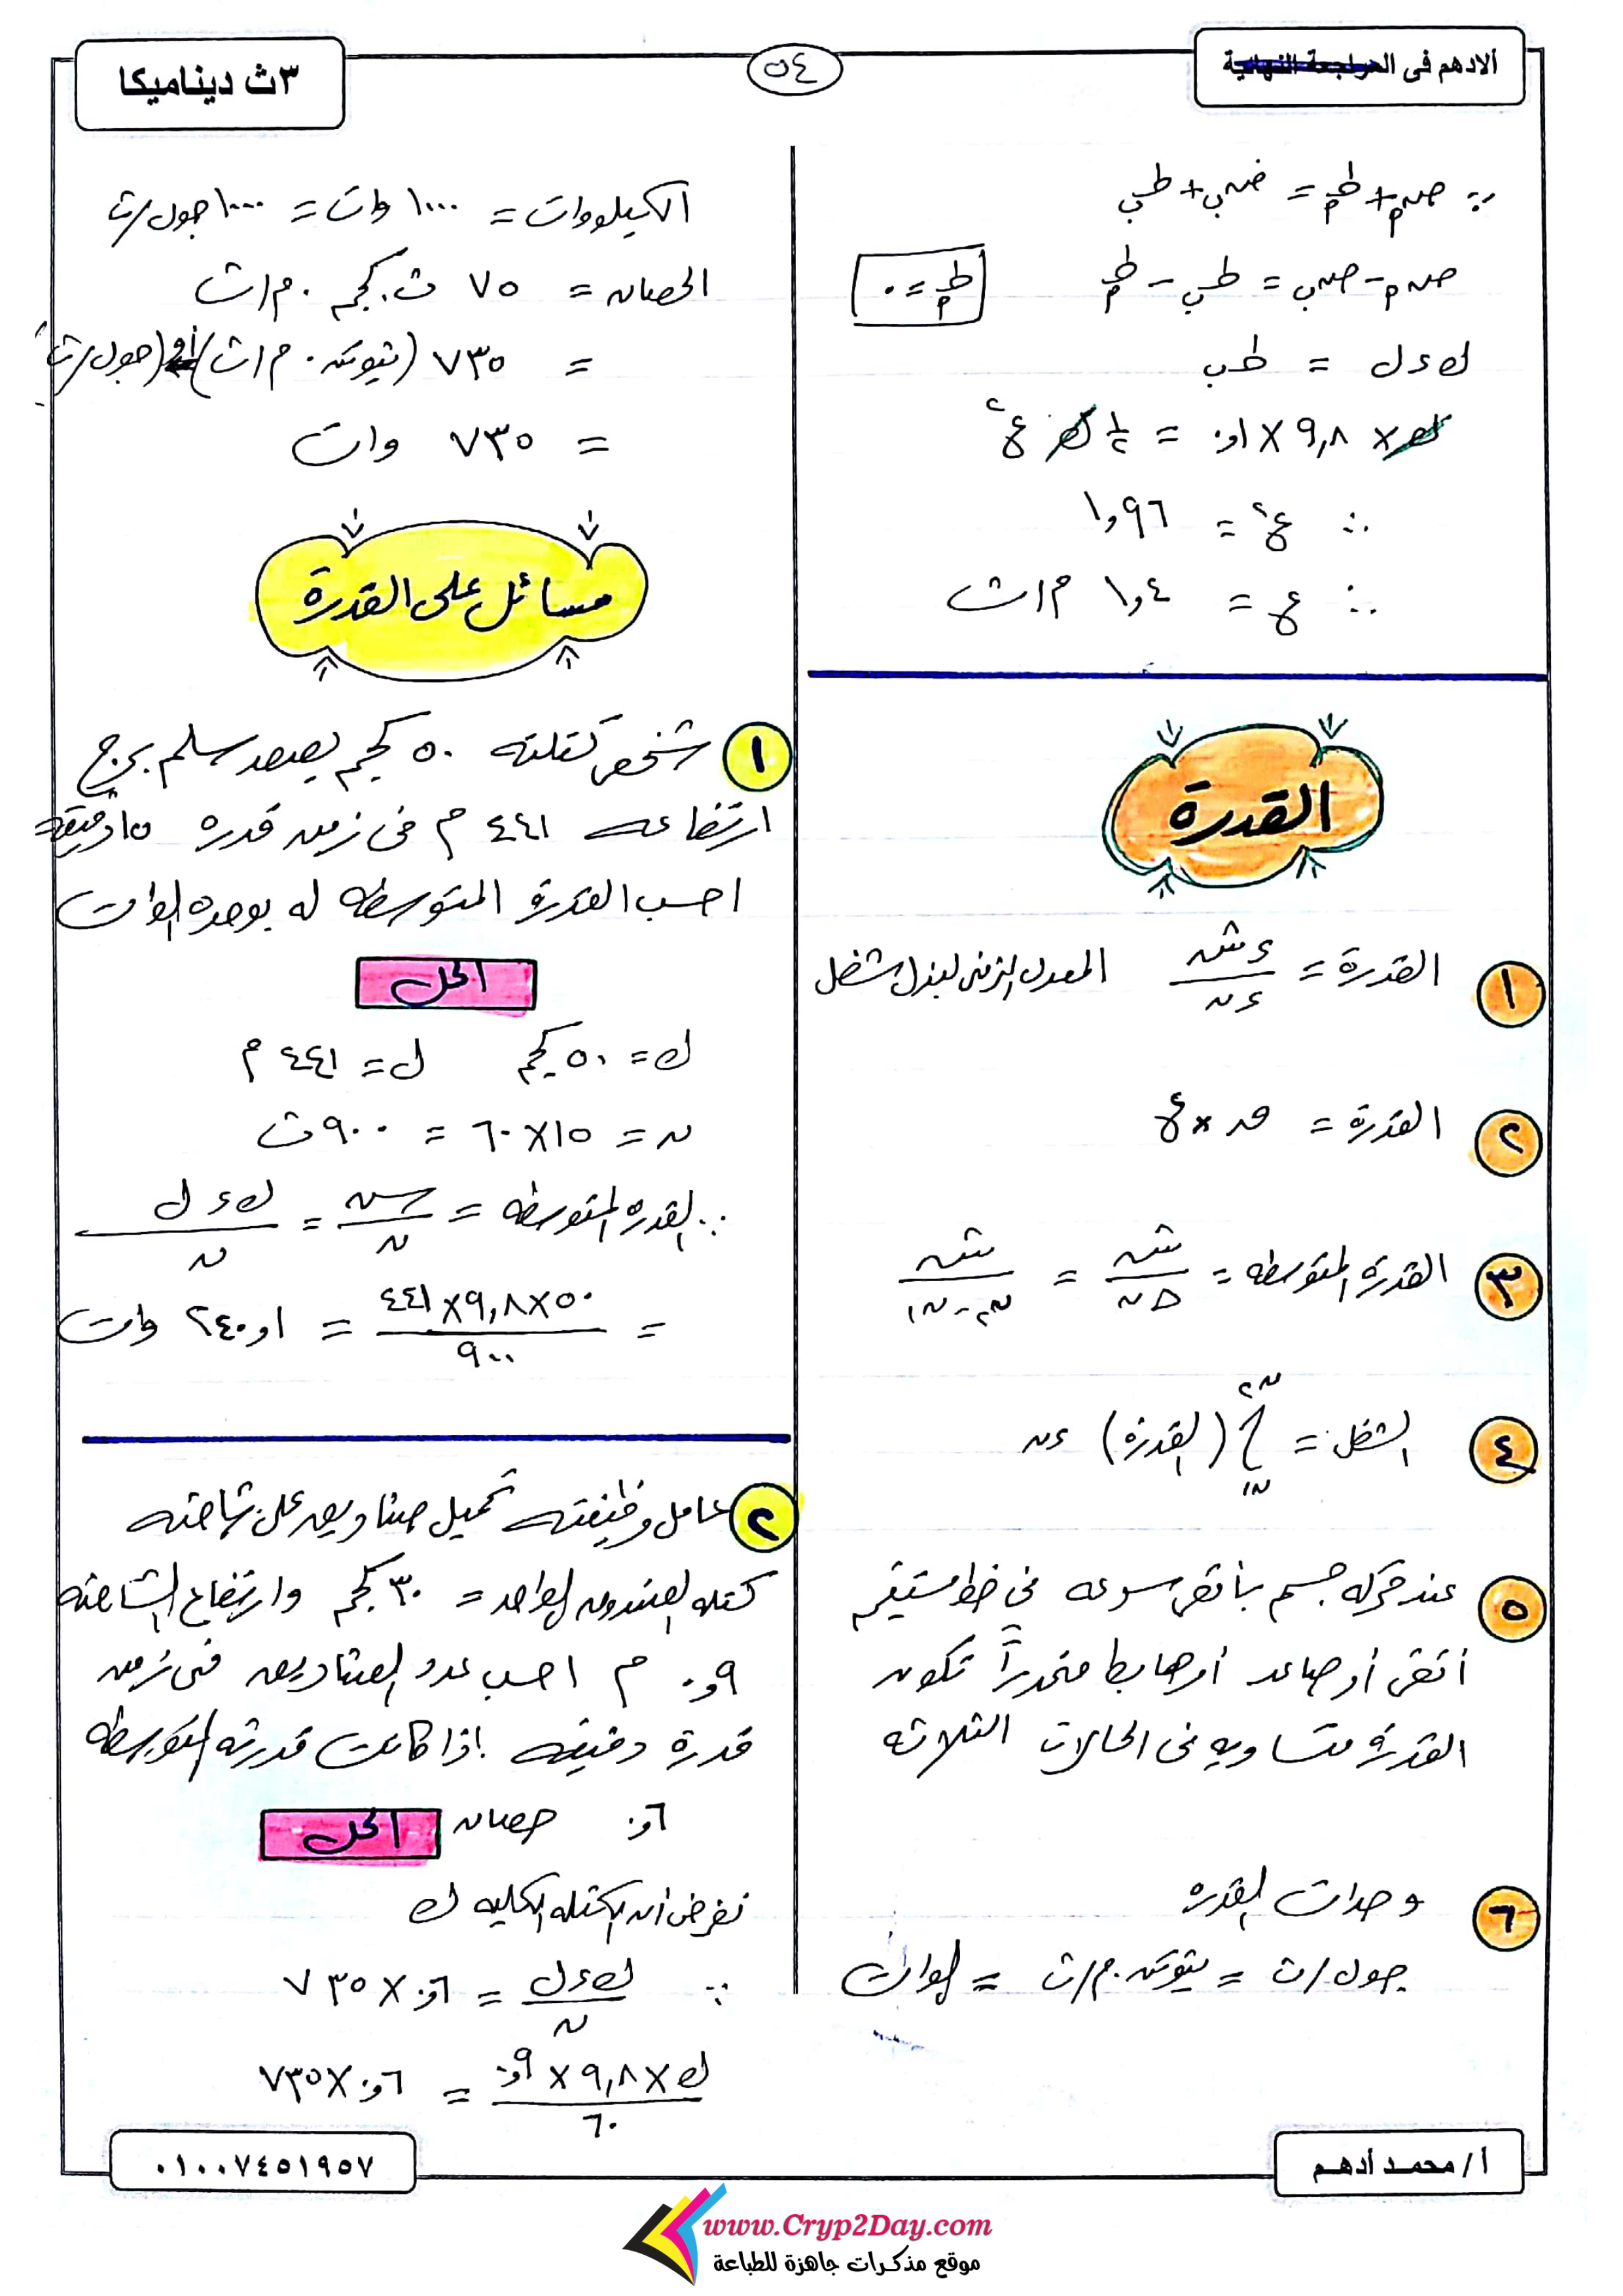 ألادهم فى المراجعة النهائية
٥٤
٣ث ديناميكا
∵ ض م + ط م = ض ب + ط ب
ض م - ض ب = ط ب - ط م
ط م = ٠
ك ء ل = ط ب
ك × ٩,٨ × ٠,١ = ١/٢ ك ع٢
∴ ع٢ = ١,٩٦
∴ ع = ١,٤ م/ث
القدرة
١ القدرة = ء ش / ء ن المعدل الزمنى لبذل شغل
٢ القدرة = ق × ع
٣ القدرة المتوسطه = ش / Δ ن = ش / ن٢ - ن١
٤ الشغل = ∫ ن١ ن٢ (القدرة) ء ن
٥ عند حركه جسم بأقصى سرعه فى خط مستقيم
أفقى أو صاعد أو هابط منحدراً تكون
القدرة متساويه فى الحالات الثلاثه
٦ وحدات القدره
جول/ث = نيوتن.م/ث = الوات
الكيلووات = ١٠٠٠ وات = ١٠٠٠ جول/ث
الحصان = ٧٥ ث.كجم.م/ث
= ٧٣٥ (نيوتن.م/ث) أو (جول/ث)
= ٧٣٥ وات
مسائل على القدرة
١ شخص كتلته ٥٠ كجم يصعد سلم برج
ارتفاعه ٤٤١ م فى زمن قدره ١٥ دقيقه
احسب القدرة المتوسطه له بوحده الوات
الحل
ك = ٥٠ كجم ل = ٤٤١ م
ن = ١٥ × ٦٠ = ٩٠٠ ث
∴ القدره المتوسطه = ش / ن = ك ء ل / ن
= ٥٠ × ٩,٨ × ٤٤١ / ٩٠٠ = ٢٤٠,١ وات
٢ عامل وظيفته تحميل صناديق على شاحنه
كتله الصندوق الواحد = ٣٠ كجم وارتفاع الشاحنه
٠,٩ م احسب عدد الصناديق فى زمن
قدرة دقيقه إذا كانت قدرته المتوسطه
٠,٦ حصان
الحل
نفرض أن الكتله الكليه ك
∵ ك ء ل / ن = ٠,٦ × ٧٣٥
ك × ٩,٨ × ٠,٩ / ٦٠ = ٠,٦ × ٧٣٥
أ/ محمد أدهم
٠١٠٠٧٤٥١٩٥٧
www.Cryp2Day.com
موقع مذكرات جاهزة للطباعة